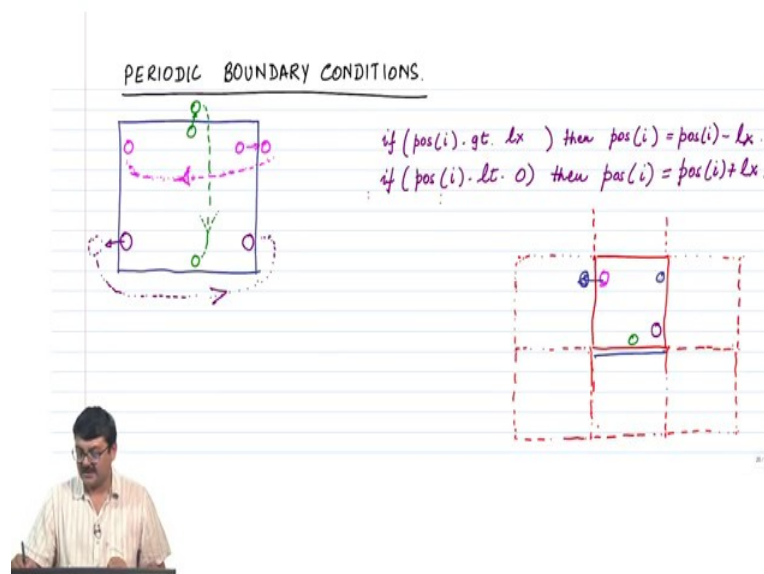 PERIODIC BOUNDARY CONDITIONS.
if (pos(i) . gt. lx ) then pos(i) = pos(i) - lx.
if (pos(i) . lt. 0) then pos(i) = pos(i) + lx.